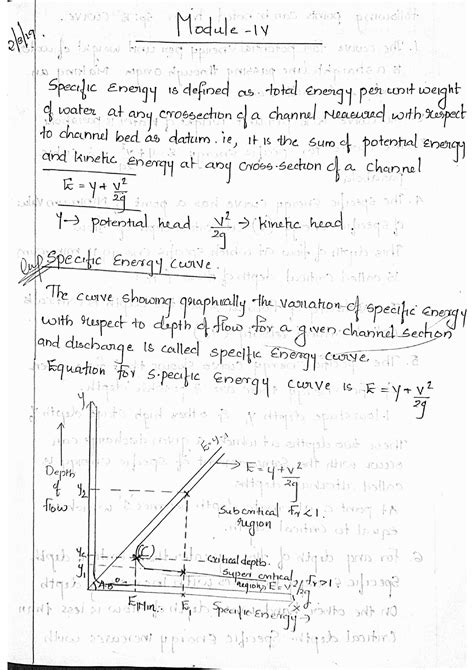 Module-IV
2/3/29.
Specific Energy is defined as total Energy per unit weight
of water at any crossection of a channel Measured with respect
to channel bed as datum. ie, it is the sum of potential Energy
and kinetic Energy at any cross-section of a channel
E = y + v²/2g
y → potential head. v²/2g → kinetic head.
Specific Energy curve.
The curve showing graphically the variation of specific Energy
with respect to depth of flow for a given channel section
and discharge is called specific Energy curve.
Equation for Specific Energy curve is E = y + v²/2g
y
E=y
E = y + v²/2g
Depth
of
flow
y₂
Subcritical Fr<1.
region
(C)
yc
critical depth.
y₁
Super critical
region
E=v²/2g
Fr>1
45°
EMin.
E₁
Specific Energy→
x